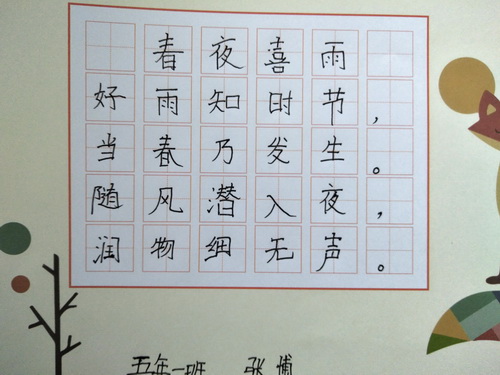 春夜喜雨
好雨知时节，
当春乃发生。
随风潜入夜，
润物细无声。
五年一班 张博